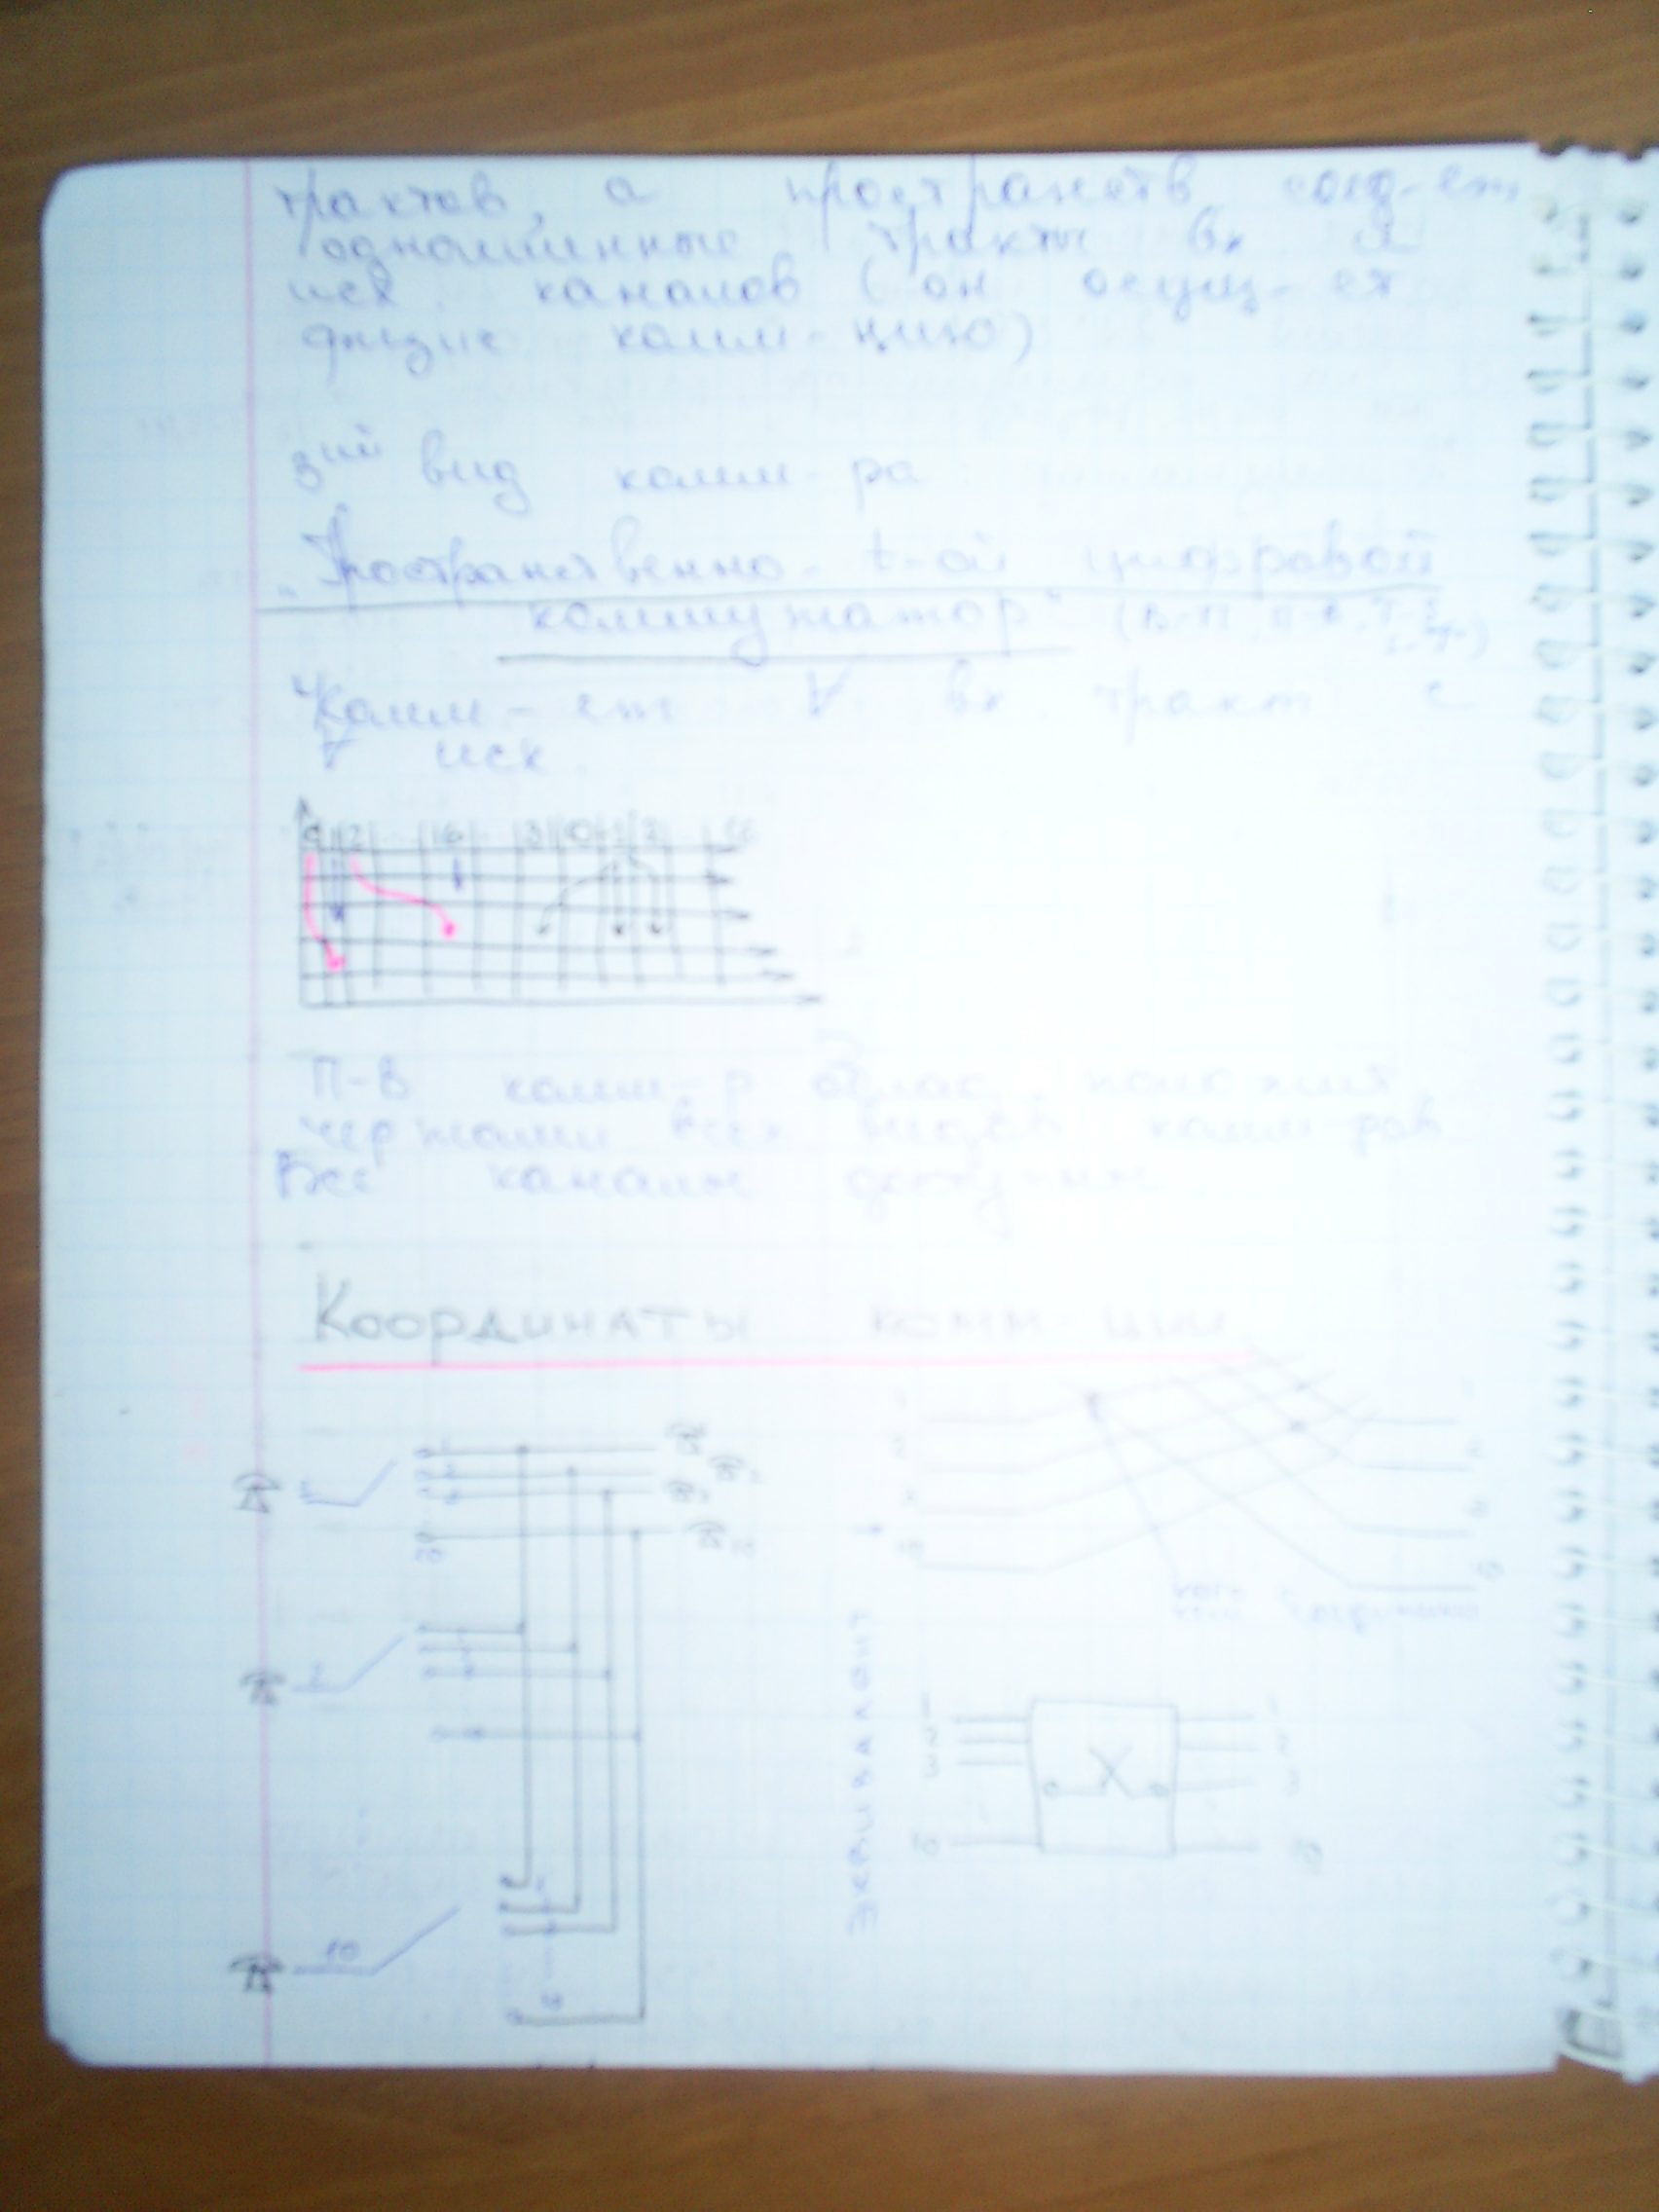 трактов, а пространств соед-ет
одноимённые тракты вх и
исх. каналов (он осущ-ся
физич комм-цию)
3ий вид комм-ра
"Пространственно-t-ой цифровой
коммутатор" (В-П, П-В, T-S
S-T)
Комм-ет ∀ вх тракт с
∀ исх
0 1 2 16 31 0 1 2
П-В комм-р облад полож
чертами всех видов комм-ров
Все каналы доступны
Координаты комм-ции
1
2
3
10
1
2
10
точ
ком. координаты
ЭКВИВАЛЕНТ
1
2
3
10
1
2
3
10
1
2
10